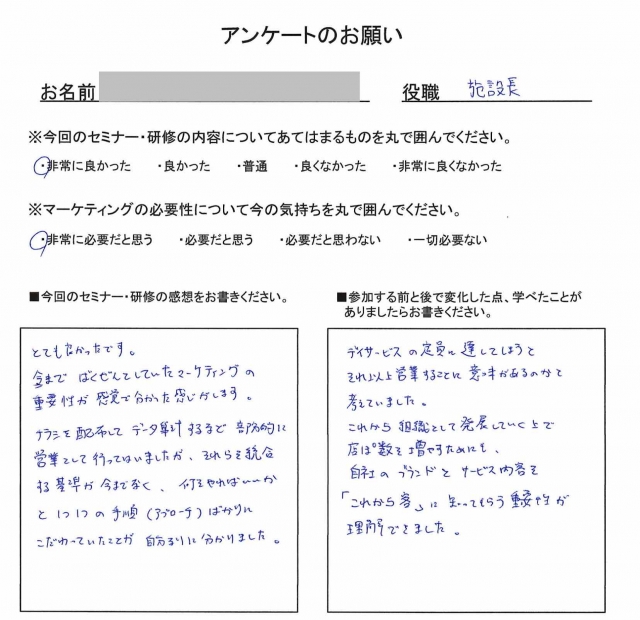 アンケートのお願い
お名前 役職 施設長
※今回のセミナー・研修の内容についてあてはまるものを丸で囲んでください。
・非常に良かった ・良かった ・普通 ・良くなかった ・非常に良くなかった
※マーケティングの必要性について今の気持ちを丸で囲んでください。
・非常に必要だと思う ・必要だと思う ・必要だと思わない ・一切必要ない
■今回のセミナー・研修の感想をお書きください。
とても良かったです。
今まで ばくぜんとしていたマーケティングの
重要性が 感覚で分かった感じがします。
チラシを配布して データ集計するなど 部分的に
営業として行ってはいましたが、それらを統合
する基準が今までなく、何をやればいいか
と1つ1つの手順(アプローチ)ばかりに
こだわっていたことが 自分なりに分かりました。
■参加する前と後で変化した点、学べたことが
ありましたらお書きください。
デイサービスの定員に達してしまうと
それ以上営業することに意味があるのかと
考えていました。
これから組織として発展していく上で
店舗数を増やすためにも、
自社のブランドとサービス内容を
「これから客」に知ってもらう重要性が
理解できました。